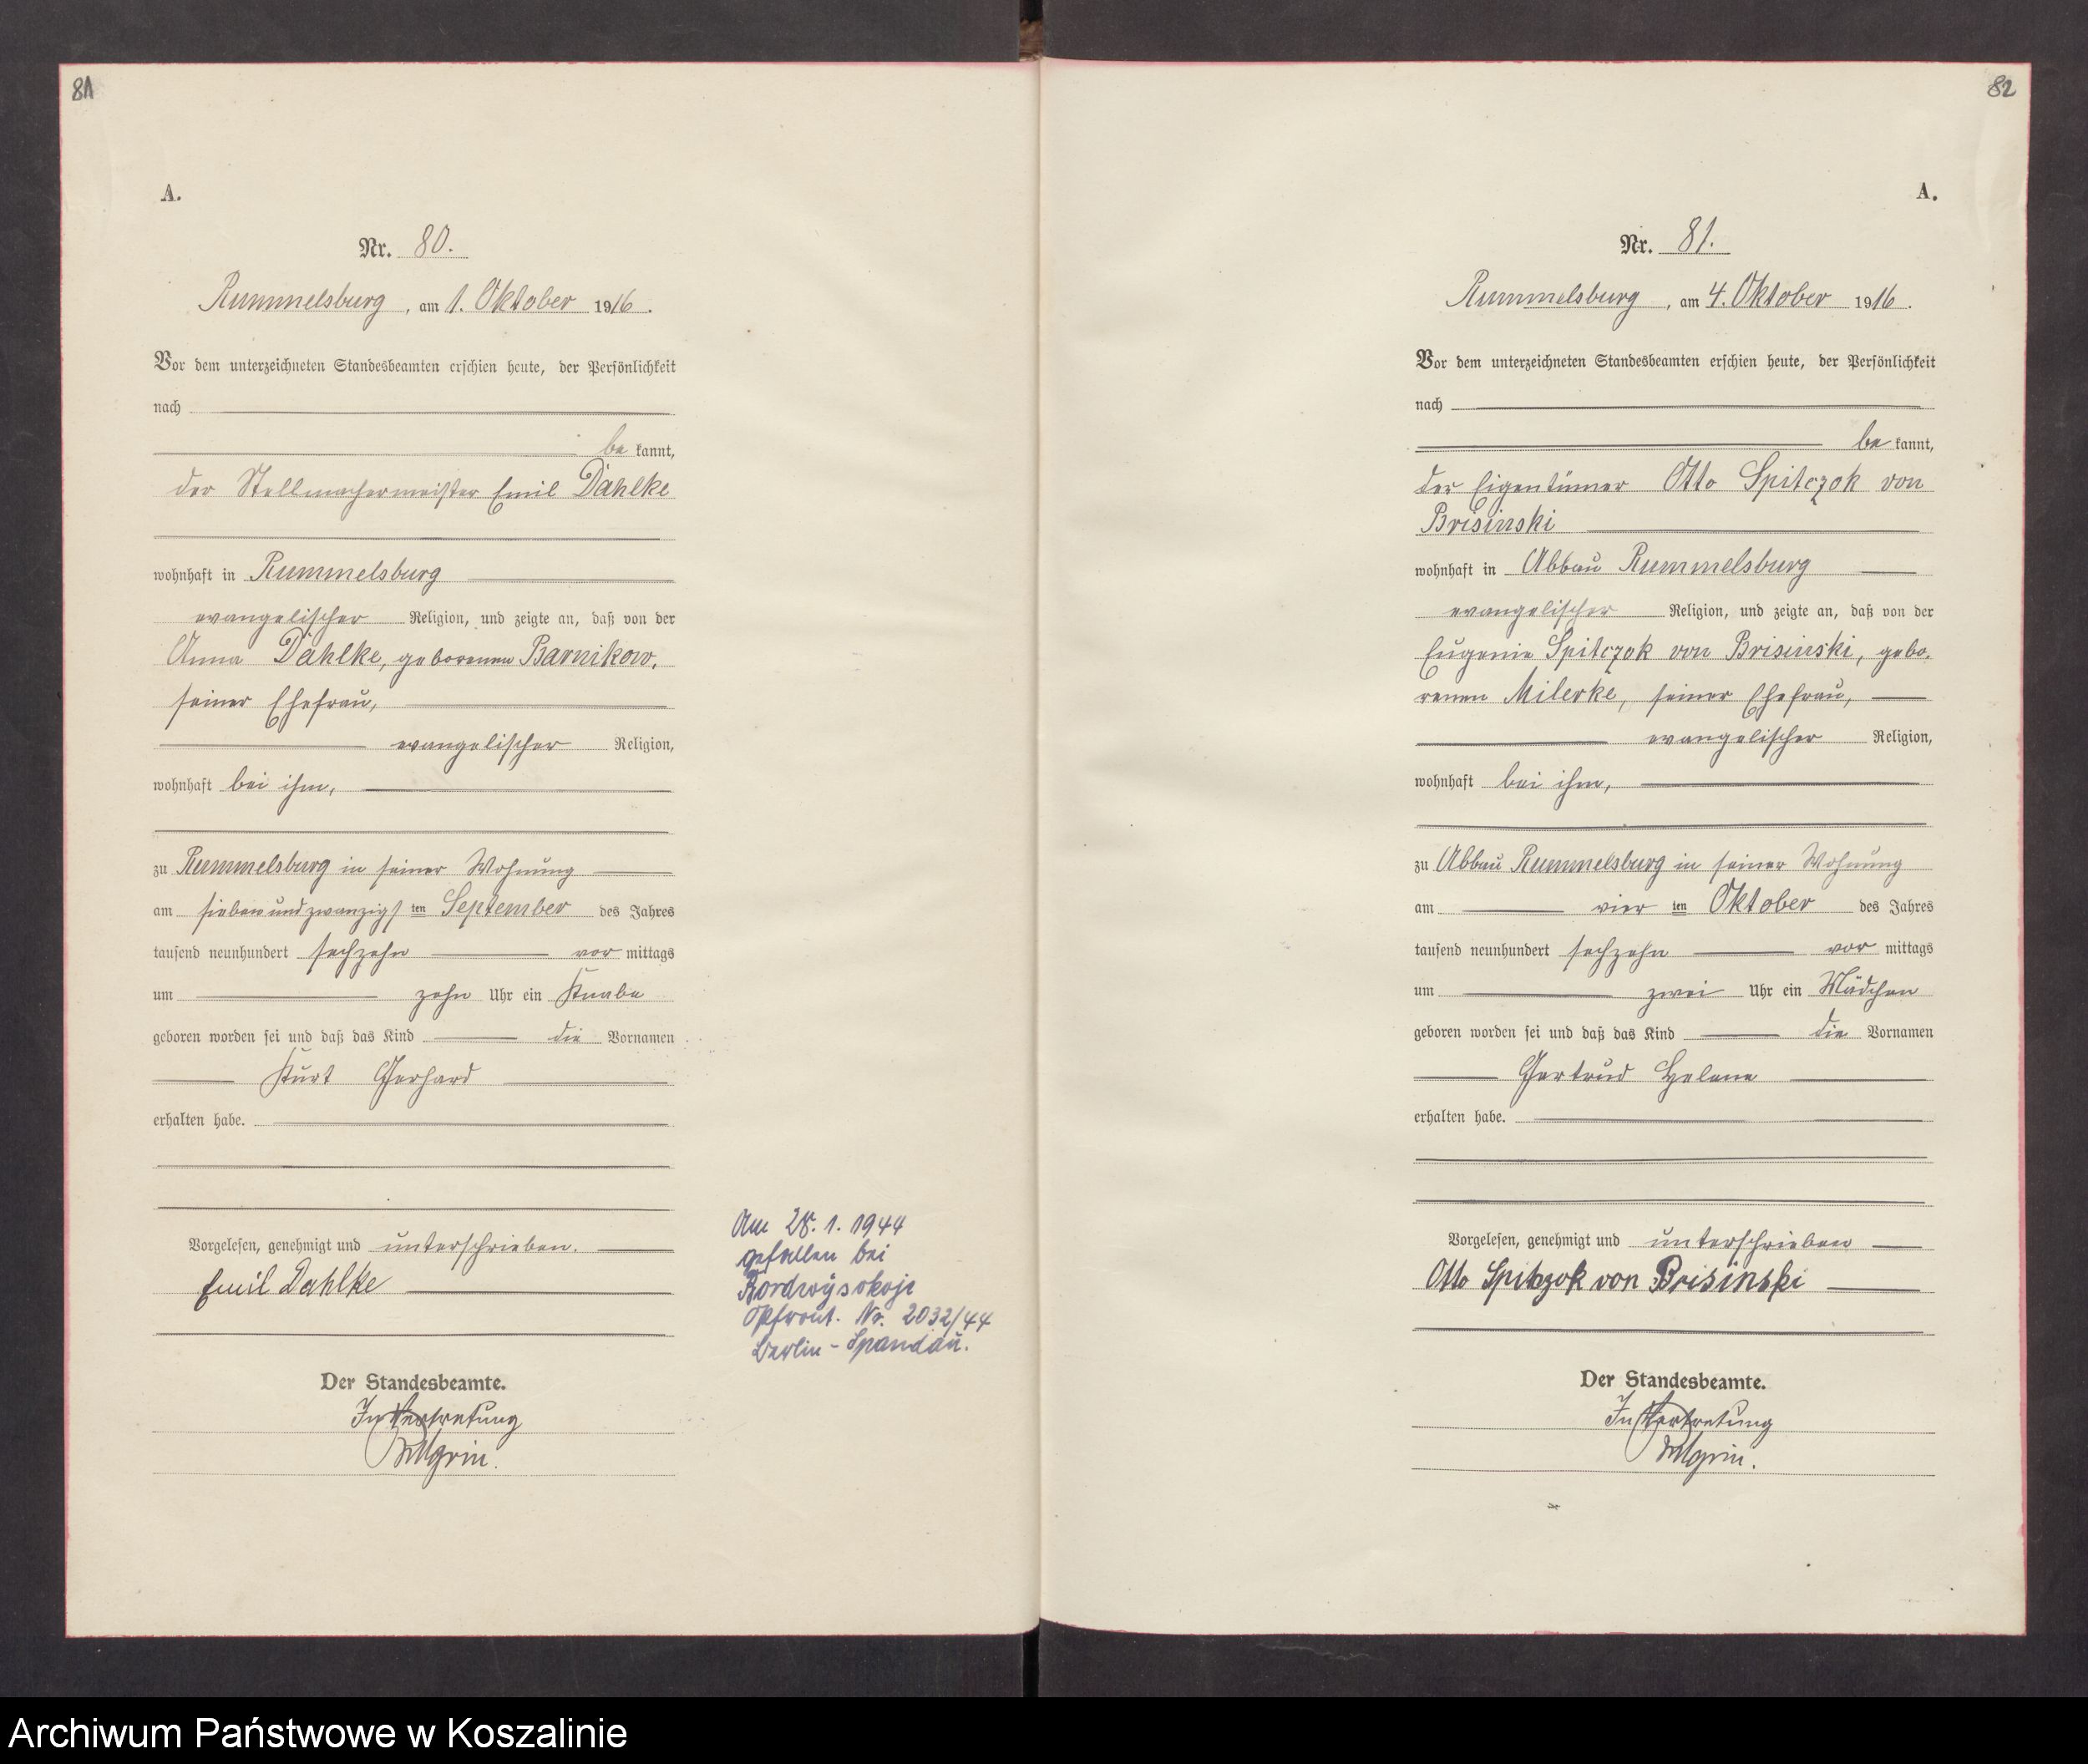 81
A.
Nr. 80.
Rummelsburg, am 1. Oktober 1916.
Vor dem unterzeichneten Standesbeamten erschien heute, der Persönlichkeit
nach
be kannt,
der Stellmachermeister Emil Dahlke
wohnhaft in Rummelsburg
evangelischer Religion, und zeigte an, daß von der
Anna Dahlke, geborenen Barnikow,
seiner Ehefrau,
evangelischer Religion,
wohnhaft bei ihm,
zu Rummelsburg in seiner Wohnung
am siebenundzwanzigsten September des Jahres
tausend neunhundert sechzehn vor mittags
um zehn Uhr ein Knabe
geboren worden sei und daß das Kind die Vornamen
Kurt Gerhard
erhalten habe.
Vorgelesen, genehmigt und unterschrieben.
Emil Dahlke
Der Standesbeamte.
In Vertretung
Am 28. 1. 1944
gefallen bei
Nr. 2032/44
Berlin-Spandau.
82
A.
Nr. 81.
Rummelsburg, am 4. Oktober 1916.
Vor dem unterzeichneten Standesbeamten erschien heute, der Persönlichkeit
nach
be kannt,
der Eigentümer Otto Spitczok von
Brisinski
wohnhaft in Abbau Rummelsburg
evangelischer Religion, und zeigte an, daß von der
Eugenie Spitczok von Brisinski, gebo-
renen Milerke, seiner Ehefrau,
evangelischer Religion,
wohnhaft bei ihm,
zu Abbau Rummelsburg in seiner Wohnung
am vier ten Oktober des Jahres
tausend neunhundert sechzehn vor mittags
um zwei Uhr ein Mädchen
geboren worden sei und daß das Kind die Vornamen
Gertrud Helene
erhalten habe.
Vorgelesen, genehmigt und unterschrieben
Otto Spitczok von Brisinski
Der Standesbeamte.
In Vertretung
Archiwum Państwowe w Koszalinie